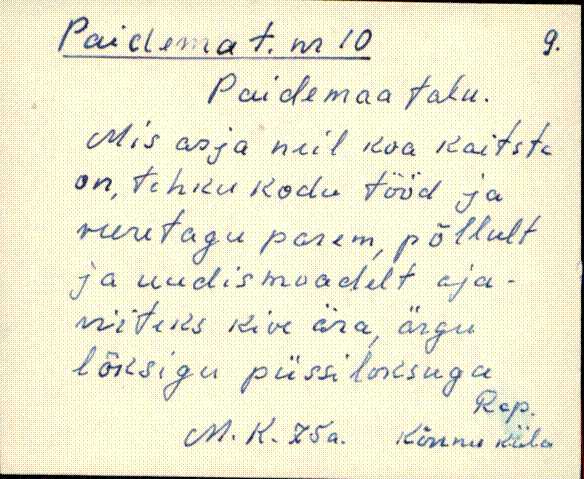 Paidema t. nr 10
9.
Paidemaa talu.
Mis asja neil koa kaitsta
on, tehku kodu tööd ja
veeretagu parem, põllult
ja uudismoadelt aja-
viiteks kive ära, ärgu
lõksigu püssiloksuga
Rap.
M. K. 75a. Kõnnu küla